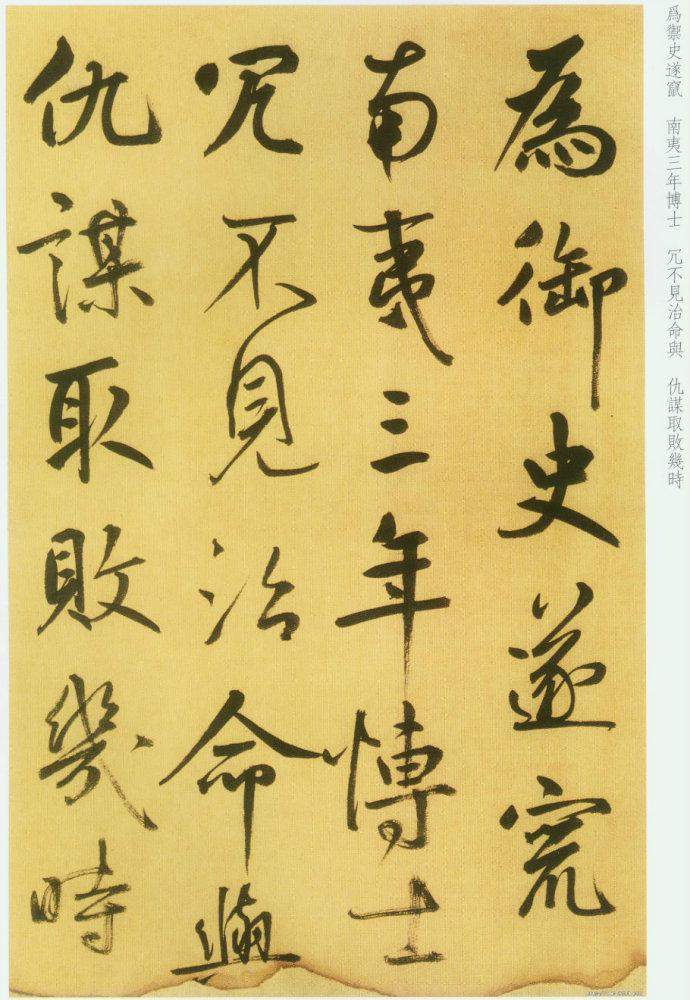 爲禦史遂竄 南夷三年博士 冗不見治命與 仇謀取敗幾時
為御史遂竄
南夷三年博士
冗不見治命與
仇謀取敗幾時